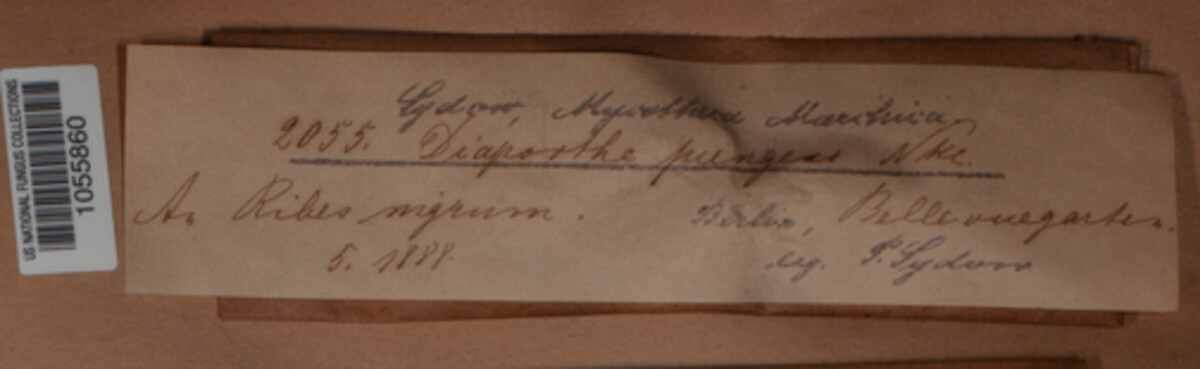 US NATIONAL FUNGUS COLLECTIONS
1055860
Sydow, Mycotheca Marchica.
2055. Diaporthe pungens Nke.
An Ribes nigrum. Berlin, Bellevuegarten.
5. 1888. leg. P. Sydow